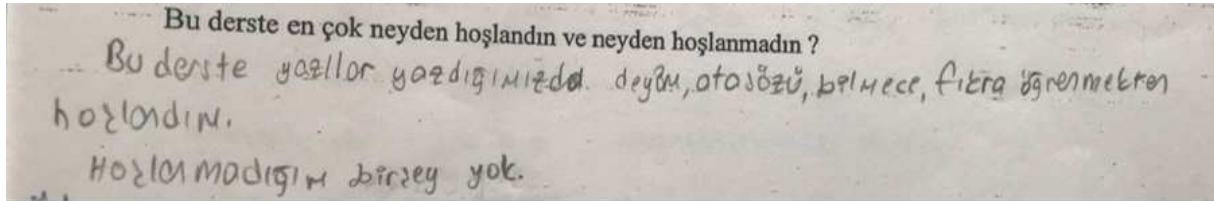 Bu derste en çok neyden hoşlandın ve neyden hoşlanmadın ?
Bu derste yazılar yazdığımızda. deyim, atasözü, bilmece, fıkra öğrenmekten
hoşlandım.
Hoşlanmadığım birşey yok.